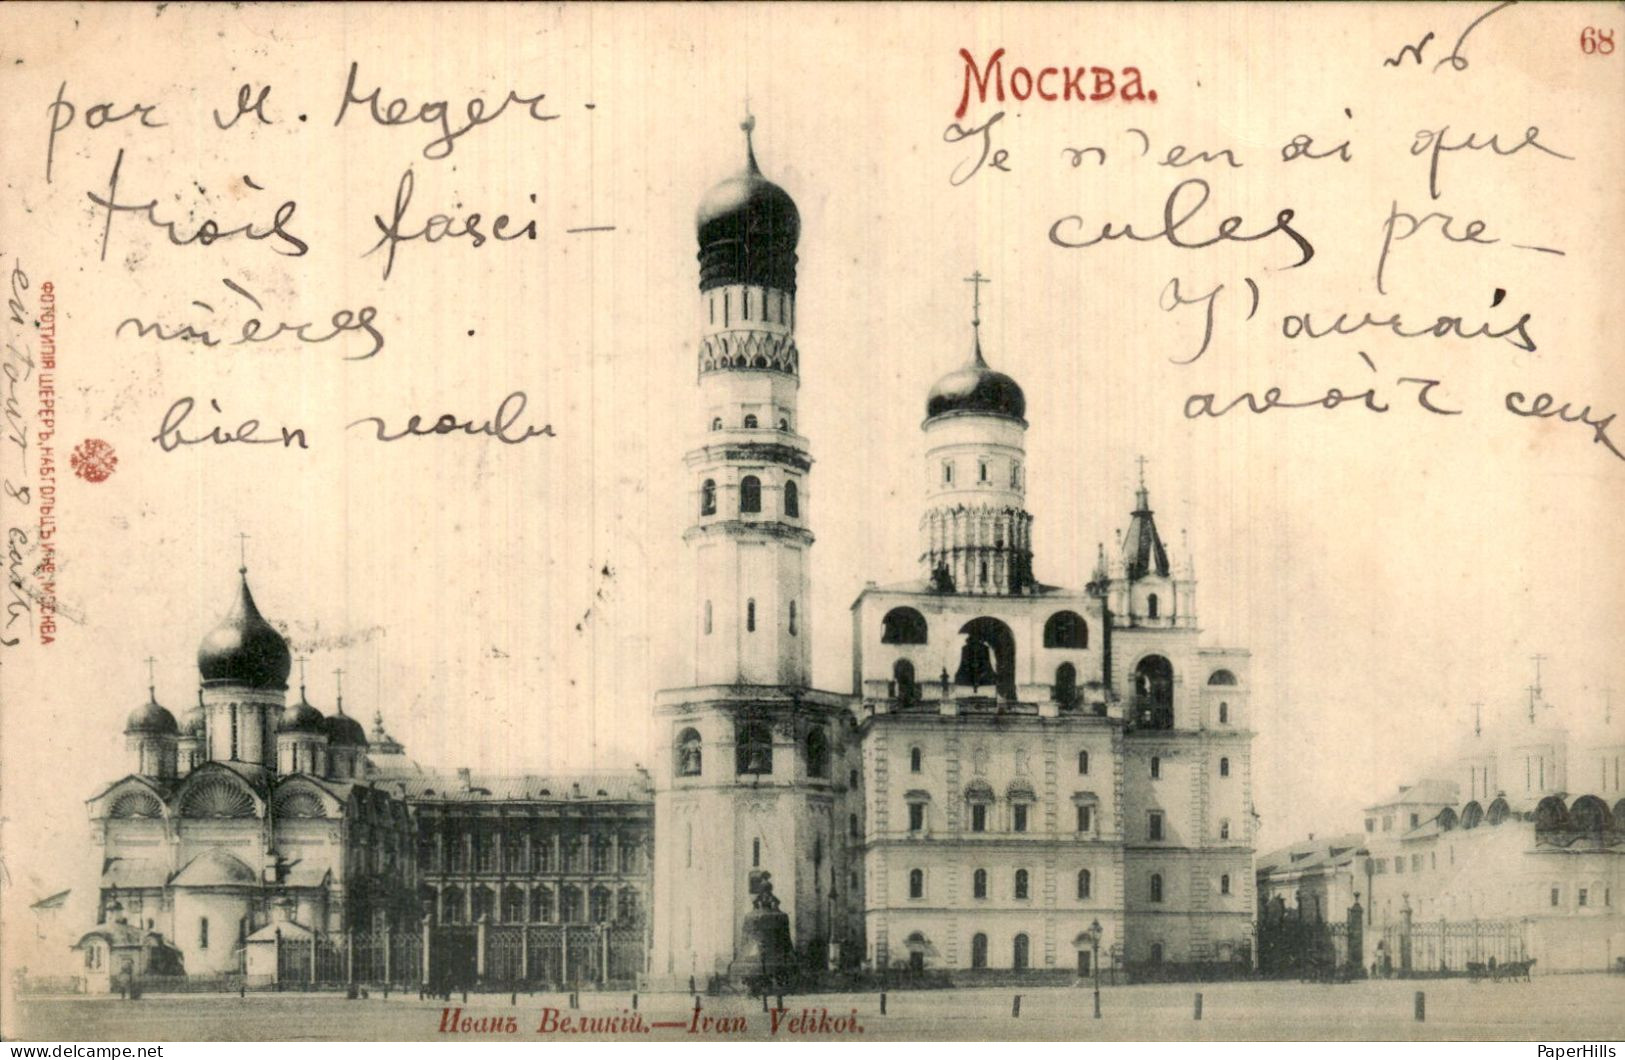 68
Москва.
N 6
par M. Meger.
trois fasci-
nières.
bien voulu
Je n'en ai que
cules pre-
J'avrais
avoir ceux
en tout 8 carts,
ФОТОТИПІЯ ШЕРЕРЪ, НАБГОЛЬЦЪ И Кº, МОСКВА
Иванъ Великій.—Ivan Velikoi.
PaperHills